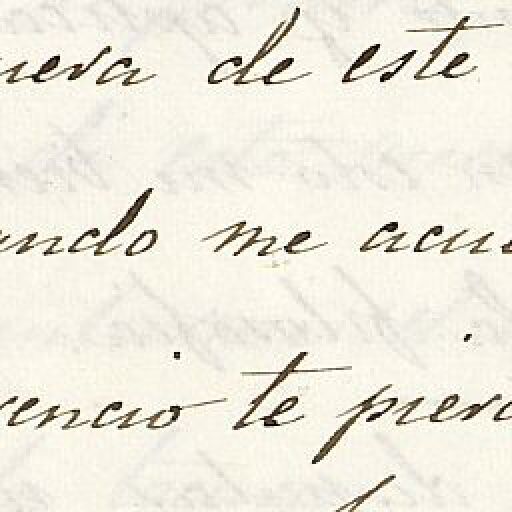 uera de este
ando me acue
rencio te pierd